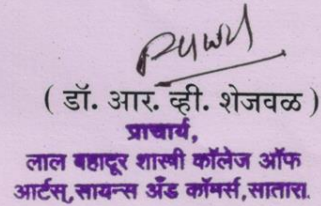 ( डॉ. आर. व्ही. शेजवळ )
प्राचार्य,
लाल बहादूर शास्त्री कॉलेज ऑफ
आर्टस्,सायन्स अँड कॉमर्स,सातारा.